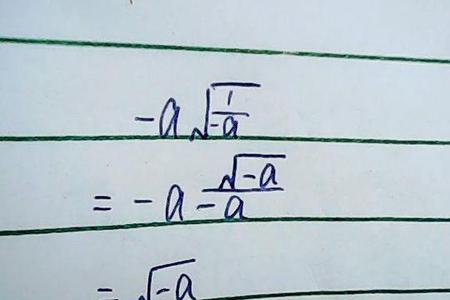 -a√(1/-a)
= -a √(-a)/-a
= √(-a)